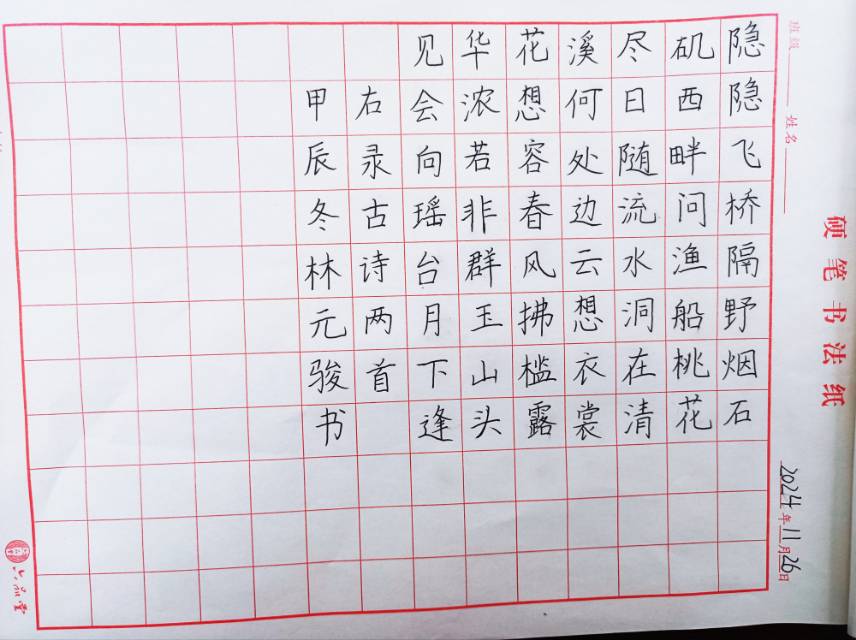 硬笔书法纸
班级 姓名
2024年11月26日
隐隐飞桥隔野烟石
矶西畔问渔船桃花
尽日随流水洞在清
溪何处边云想衣裳
花想容春风拂槛露
华浓若非群玉山头
见会向瑶台月下逢
右录古诗两首
甲辰冬林元骏书
六品堂